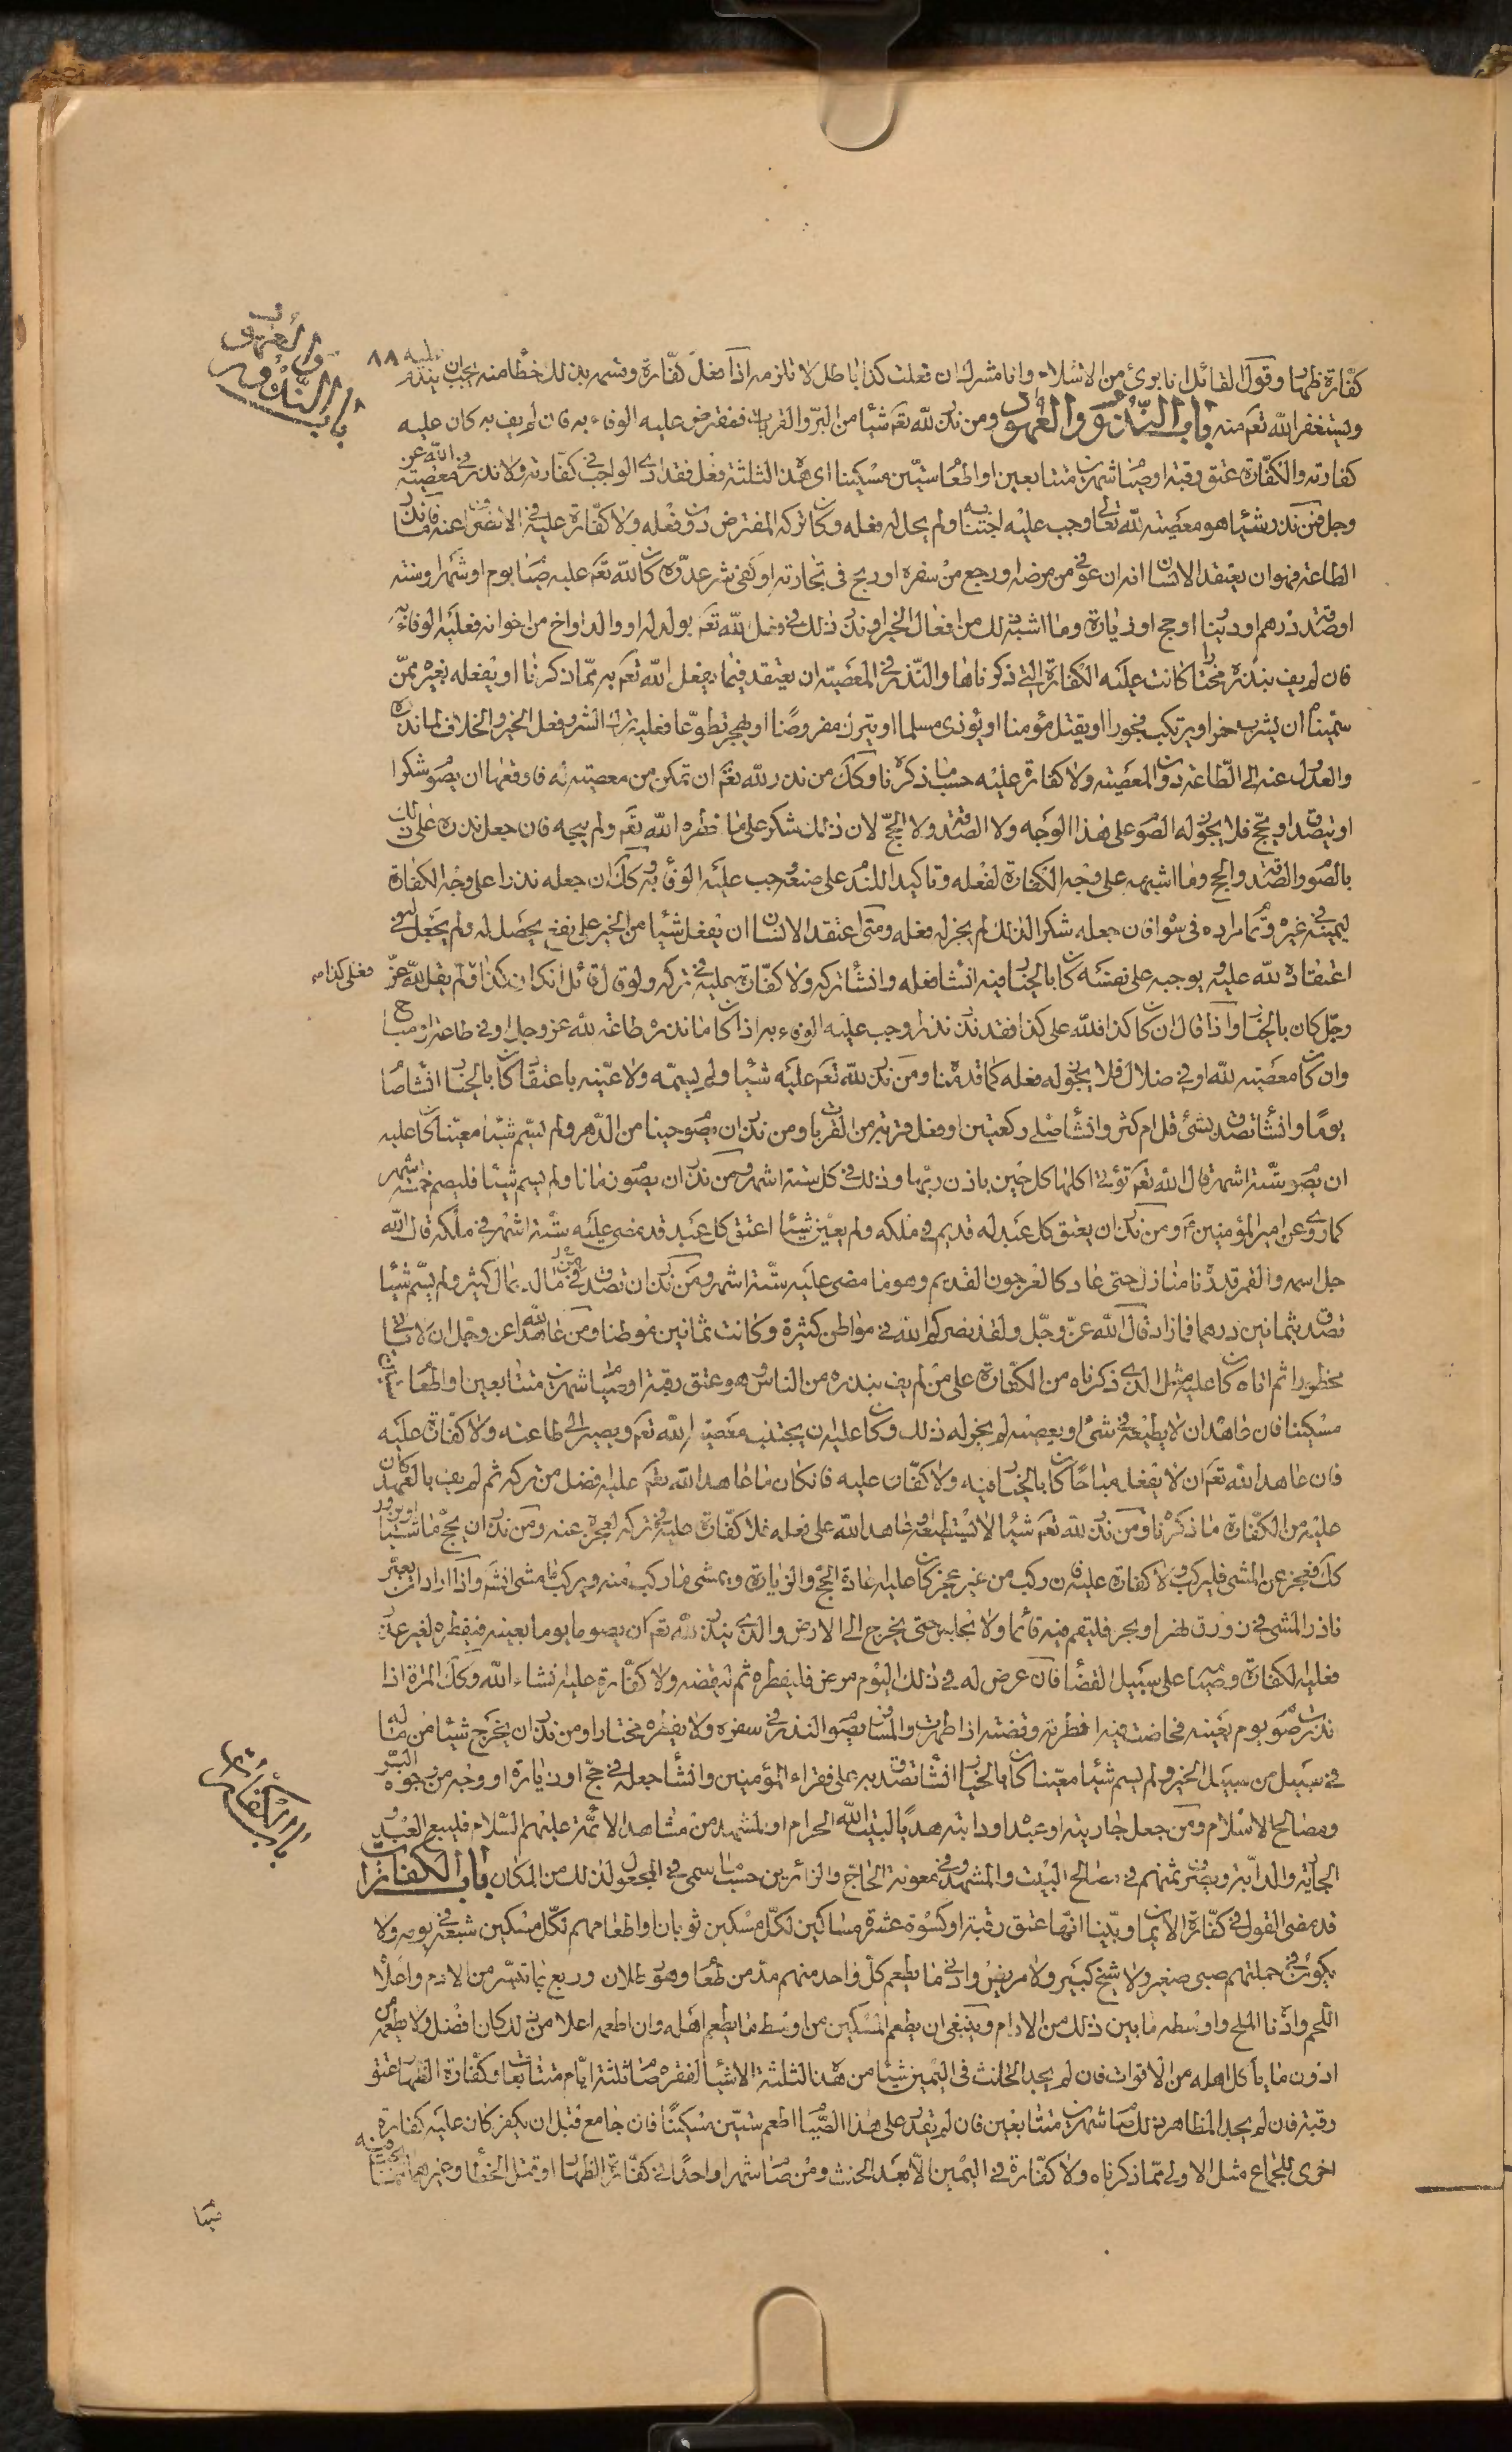 كفّارة ظهار وقول القائل انا بريئ من الاسلام وانا مشرك ان فعلت كذا باطل لا تلزمه اذا فعل كفّارة وقسمه بذلك خطأ منه يجب ان يندم عليه ٨٨
ويستغفر الله تعم منه باب النّذور والعهود ومن نذر لله تعم شيئا من البرّ والقربات ففرض عليه الوفاء به فان لم يف به كان عليه
باب النّذور والعهود
كفارته والكفّارة عتق رقبة او صيام شهرين متتابعين او اطعام ستّين مسكينا اى هذه الثلثة فعل فقد ادى الواجب في كفّارته ولا نذر في معصية الله عز
وجل فمن نذر شيئا هو معصية لله تعالى وجب عليه اجتنابه ولم يحل له فعله وكان تركه المفترض دون فعله ولا كفّارة عليه في الانصراف عنه فاما نذر
الطاعة فهو ان يعتقد الانسان انه ان عوفي من مرضه او رجع من سفره او ربح في تجارته او كفى شر عدوّه كان لله تعم عليه صيام يوم او شهر او سنة
او صدقة درهم او دينار او حج او زيارة وما اشبه ذلك من افعال الخير او نذر ذلك في فعل لله تعم بولد له او والد او اخ من اخوانه فعليه الوفاء به
فان لم يف بنذره مختارا كانت عليه الكفارة التي ذكرناها والنّذر في المعصية ان يعتقد فيما يفعل الله تعم به ممّا ذكرنا او يفعله بغيره ممّن
سمّيناه ان يشرب خمرا او يرتكب فجورا او يقتل مؤمنا او يؤذى مسلما او يترك مفروضا او يهجر تطوّعا فعليه ترك الشر وفعل الخير والخلاف لما نذره
والعدول عنه الى الطّاعة دون المعصية ولا كفارة عليه حسب ما ذكرناه وكك من نذر لله تعم ان تمكن من معصية له فاوقعها ان يصوم شكرا
او يتصدق او يحج فلا يجوز له الصوم على هذا الوجه ولا الصدقة ولا الحجّ لان ذلك شكر على ما حظره الله تعم ولم يبحه فان جعل نذره على ذلك
بالصوم والصدقة والحج وما اشبهه على وجه الكفارة لفعله وتاكيدا للندم على صنعه وجب عليه الوفاء به وكك ان جعله نذرا على وجه الكفارة
ليمينه في غيره فان جعله شكرا لذلك لم يجز له فعله ومتى اعتقد الانسان ان يفعل شيئا من الخير على نفع يحصل له ولم يجعل في
اعتقاده لله عليه ولم يوجبه على نفسه كان بالخيار فيه ان شاء فعله وان شاء تركه ولا كفّارة عليه في تركه ولو قال قائل ان كان كذا وكذا ولم يقل لله عزّ فعلى كذا
وجّل كان بالخيار واذا قال ان كان كذا فلله على كذا فقد نذر نذرا وجب عليه الوفاء به اذا كان ما نذره طاعة لله عز وجل او في طاعة او مباح
وان كان معصية لله او في ضلال فلا يجوز له فعله كما قدمناه ومن نذر لله تعم عليه شيئا ولم يسمّه ولا عيّنه باعتقاد كان بالخيار ان شاء صام
يوما وان شاء تصدق بشئ قل ام كثر وان شاء صلى ركعتين او فعل قربة من القربات ومن نذر ان يصوم حينا من الدّهر ولم يسّم شيئا معيّنا كان عليه
ان يصوم ستّة اشهر قال الله تعم تؤتى اكلها كل حين باذن ربّها وذلك في كل ستة اشهر ومن نذر ان يصوم زمانا ولم يسم شيئا فليصم خمسة اشهر
كما روى عن امير المؤمنين ع ومن نذر ان يعتق كل عبد له قديم في ملكه ولم يعيّن شيئا اعتق كل عبد قد مضى عليه ستّة اشهر في ملكه قال الله
جل اسمه والقمر قدرناه منازل حتى عاد كالعرجون القديم وهو ما مضى عليه ستّة اشهر ومن نذر ان تصدق من ماله بمال كثير ولم يسّم شيئا
تصدق بثمانين درهما فما زاد قال الله عزّ وجّل ولقد نصركم الله في مواطن كثيرة وكانت ثمانين موطنا ومن عاهد الله عز وجل ان لا ياتى
محظورا ثم اتاه كان عليه مثل الذي ذكرناه من الكفّارة على من لم يف بنذره من الناس وهو عتق رقبة او صيام شهرين متتابعين او اطعام ستين
مسكينا فان عاهد ان لا يطيعه في شئ او يعصيه لم يجز له ذلك وكان عليه ان يجتنب معصية الله تعم ويصير الى طاعته ولا كفّارة عليه
فان عاهد الله تعم ان لا يفعل مباحا كان بالخيار فيه ولا كفّارة عليه فان كان ما عاهد الله تعم عليه افضل من تركه ثم لم يف بالعهد كان
عليه من الكفّارة ما ذكرناه ومن نذر لله تعم شيئا لا يستطيعه او عاهد الله على فعله فلا كفّارة عليه في تركه لعجزه عنه ومن نذر ان يحج ماشيا او يزور
كك فعجز عن المشى فليركب ولا كفارة عليه فان ركب من غير عجز كان عليه اعادة الحجّ والزيارة ويمشى ما ركب منه ويركب ما مشى انشاء واذا اراد ان يعبّر
ناذر المشى في زورق نهرا او بحرا فليقم فيه قائما ولا يجلس حتى يخرج الى الارض والذى ينذر لله تعم ان يصوم يوما بعينه فيفطره لغير عذر
فعليه الكفارة وصيامه على سبيل القضاء فان عرض له في ذلك اليوم مرض فليفطره ثم ليقضه ولا كفّارة عليه انشاء الله وكك المراة اذا
نذرت صوم يوم بعينه فحاضت فيه افطرته وقضته اذا طهرت والمسافر يصوم النذر في سفره ولا يفطره مختارا ومن نذر ان يخرج شيئا من ماله
في سبيل من سبيل الخير ولم يسم شيئا معيّنا كان بالخيار ان شاء تصدق به على فقراء المؤمنين وان شاء جعله في حجّ او زيارة او وجه من وجوه البّر
ومصالح الاسلام ومن جعل جاريته او عبده او دابته هديا لبيت الله الحرام او لمشهد من مشاهد الائمّة عليهم السّلام فليبع العبد او
الجارية والدابّة ويصرف ثمنهم في مصالح البيت والمشهد وفي معونة الحاجّ والزائرين حسب ما سمى في المجعول لذلك من المكان باب الكفارات
باب الكفّارات
قد مضى القول في كفّارة الايمان وبيّنا انّها عتق رقبة او كسوة عشرة مساكين لكلّ مسكين ثوبان او اطعامهم لكلّ مسكين شبعه في يومه ولا
يكون في جملتهم صبى صغير ولا شيخ كبير ولا مريض وادنى ما يطعم كلّ واحد منهم مدّ من طعام وهو رطلان وربع بما تيسّر من الادم واعلاه
اللّحم وادناه الملح واوسطه ما بين ذلك من الادام وينبغى ان يطعم المسكين من اوسط ما يطعم اهله وان اطعمه اعلا من ذلك كان افضل ولا يطعمه من
ادون ما ياكل اهله من الاقوات فان لم يجد الحانث في اليمين شيئا من هذه الثلثة الاشياء لفقره صام ثلثة ايّام متتابعات وكفّارة الظهار عتق
رقبة فان لم يجد المظاهر ذلك صام شهرين متتابعين فان لم يقدر على هذا الصّيام اطعم ستين مسكينا فان جامع قبل ان يكفر كان عليه كفارة
اخرى للجماع مثل الاولى ممّا ذكرناه ولا كفّارة في اليمين الّا بعد الحنث ومن صام شهرا واحدا في كفّارة الظهار او قتل الخطأ وغيرهما
صيام